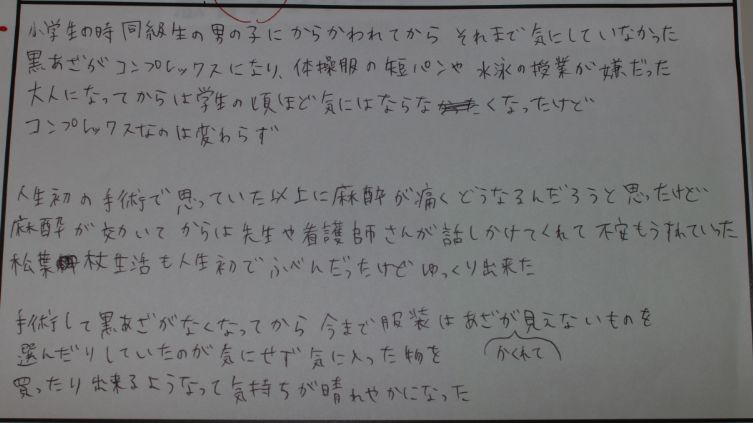 小学生の時 同級生の男の子にからかわれてから それまで気にしていなかった
黒あざがコンプレックスになり、体操服の短パンや 水泳の授業が嫌だった
大人になってからは学生の頃ほど気にはならなくなったけど
コンプレックスなのは変わらず
人生初の手術で思っていた以上に麻酔が痛くどうなるんだろうと思ったけど
麻酔が効いてからは先生や看護師さんが話しかけてくれて不安もうすれていった
松葉杖生活も人生初でふべんだったけどゆっくり出来た
手術して黒あざがなくなってから 今まで服装はあざが見えないものを
選んだりしていたのが気にせず気に入った物を
かくれて
買ったり出来るようなって気持ちが晴れやかになった